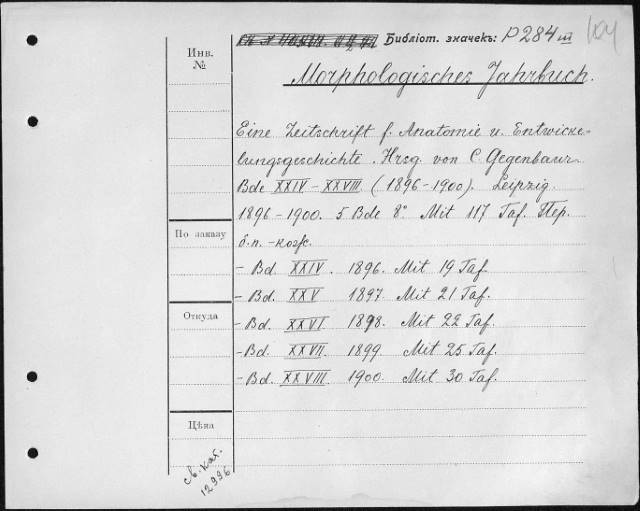 Библіот. значекъ: P 284 III
104
Инв.
№
Morphologisches Jahrbuch.
Eine Zeitschrift f. Anatomie u. Entwicke-
lungsgeschichte. Hrsg. von C. Gegenbaur.
Bde XXIV-XXVIII. (1896-1900). Leipzig.
1896-1900. 5 Bde 8° Mit 117 Taf. Пер.
б.п.-кож.
По заказу
- Bd. XXIV. 1896. Mit 19 Taf.
- Bd. XXV 1897. Mit 21 Taf.
Откуда
- Bd. XXVI. 1898. Mit 22 Taf.
- Bd. XXVII. 1899. Mit 25 Taf.
- Bd. XXVIII. 1900. Mit 30 Taf.
Цѣна
св. кат.
12996